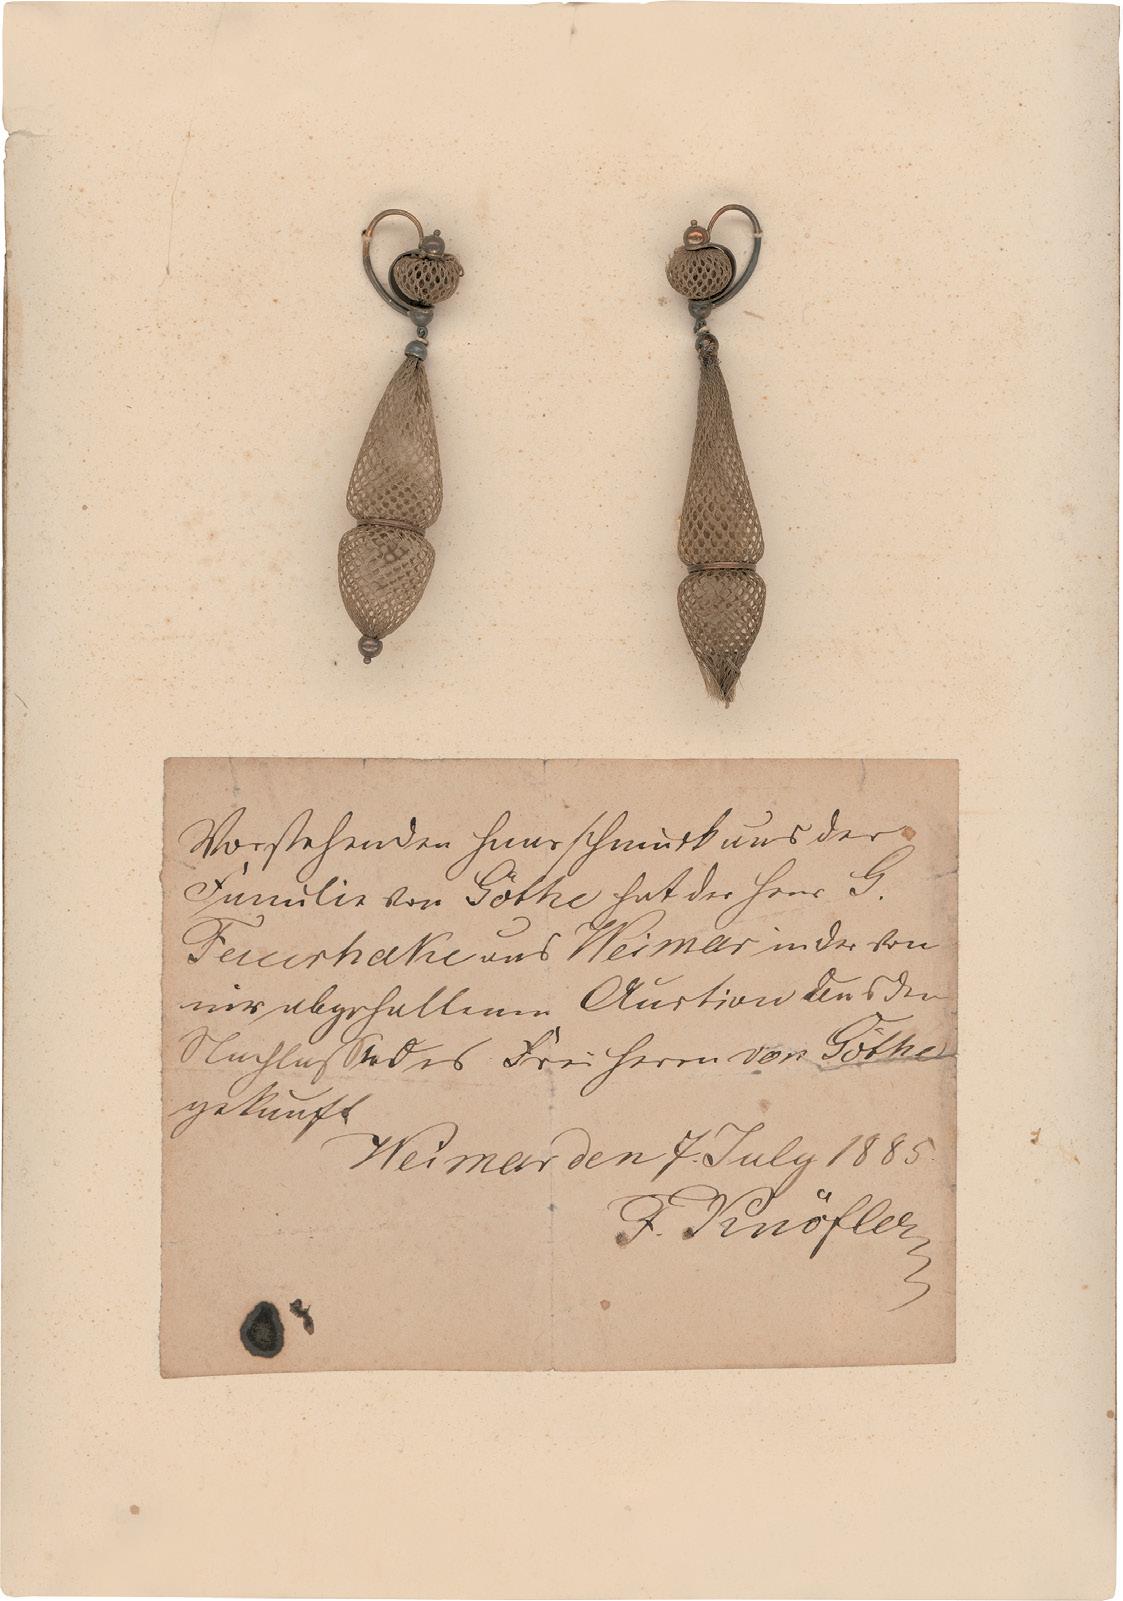 Vorstehenden Haarschmuck aus der
Familie von Göthe hat der Herr G.
Feuerhake aus Weimar in der von
mir abgehaltenen Auction aus den
Nachlasse des Freiherrn von Göthe
gekauft
Weimar den 7. July 1885.
F. Knöfler